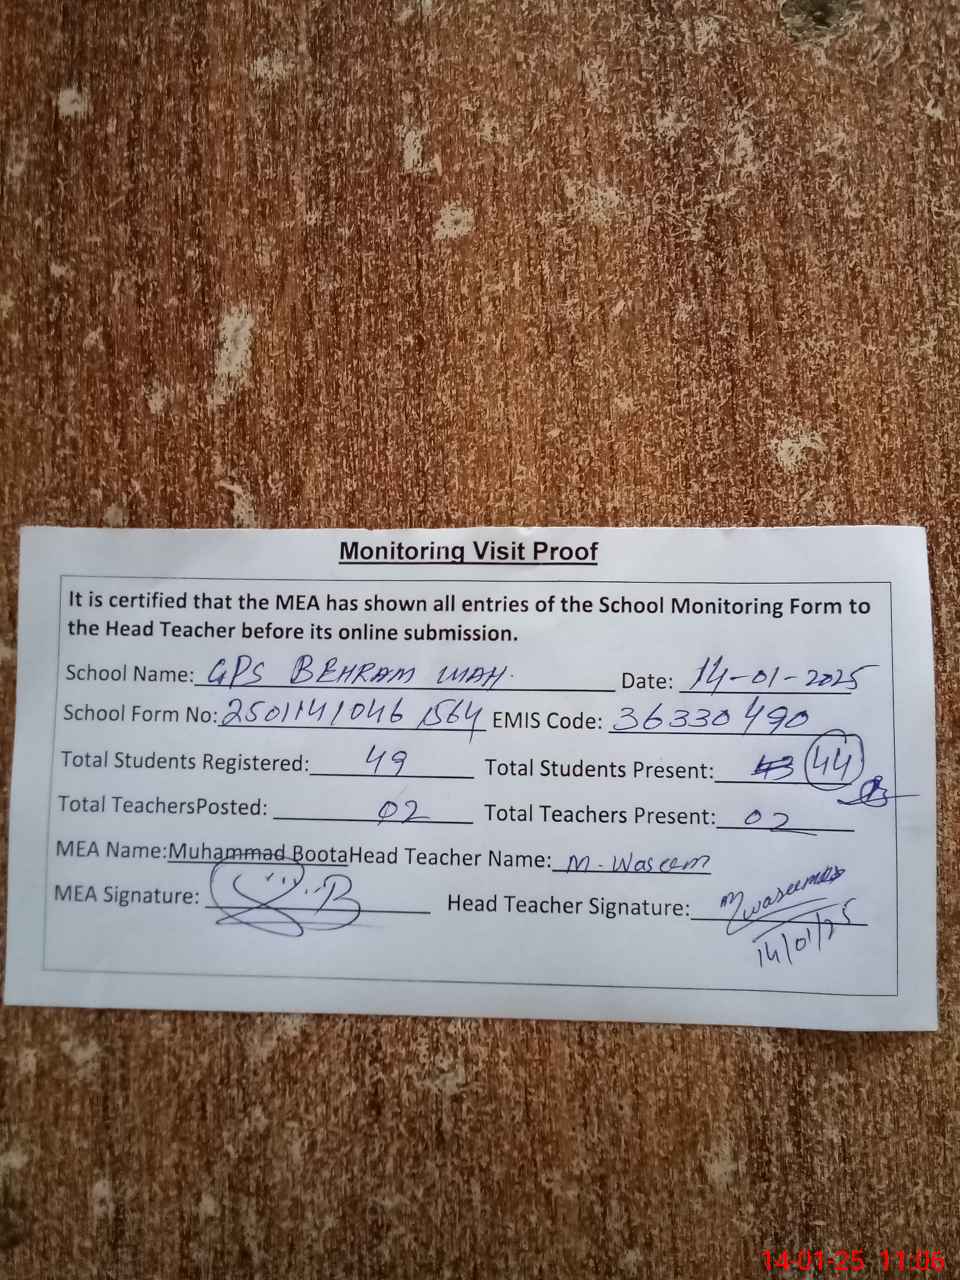 Monitoring Visit Proof
It is certified that the MEA has shown all entries of the School Monitoring Form to
the Head Teacher before its online submission.
School Name: GPS BEHRAM WAH. Date: 14-01-2025
School Form No: 25011410461564 EMIS Code: 36330490
Total Students Registered: 49 Total Students Present: 43 44
Total TeachersPosted: 02 Total Teachers Present: 02
MEA Name:Muhammad BootaHead Teacher Name: M. Waseem
MEA Signature: Head Teacher Signature: Mwaseem
14/01/25
14-01-25 11:06